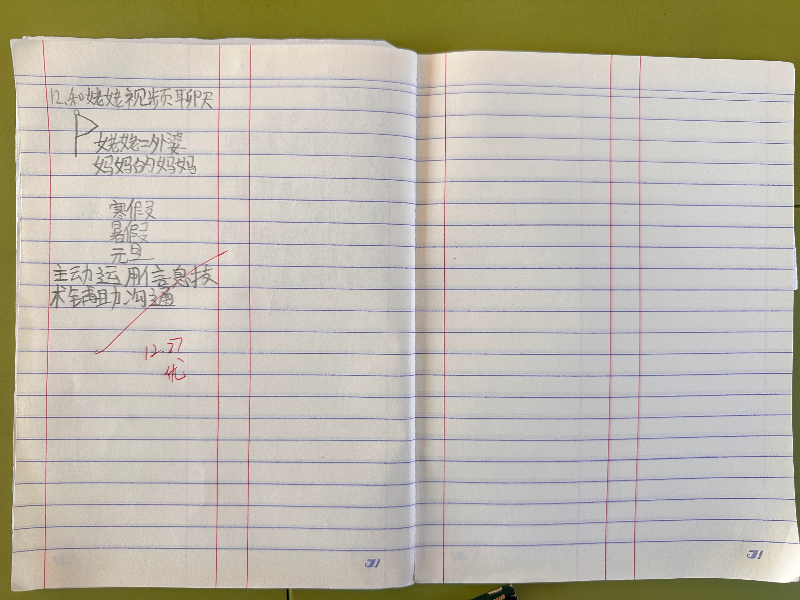 12.和姥姥视频聊天
P
姥姥=外婆
妈妈的妈妈
寒假
暑假
元旦
主动运用信息技
术辅助沟通
12.27
优